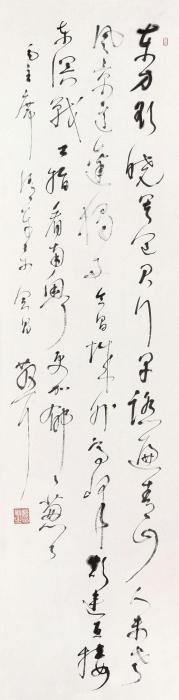 东方欲曉莫道君行早踏遍青山人未老
风景这边獨好会昌城外高峰颠连直接
东溟戰士指看南粤更加郁々葱々
毛主席清平乐会昌